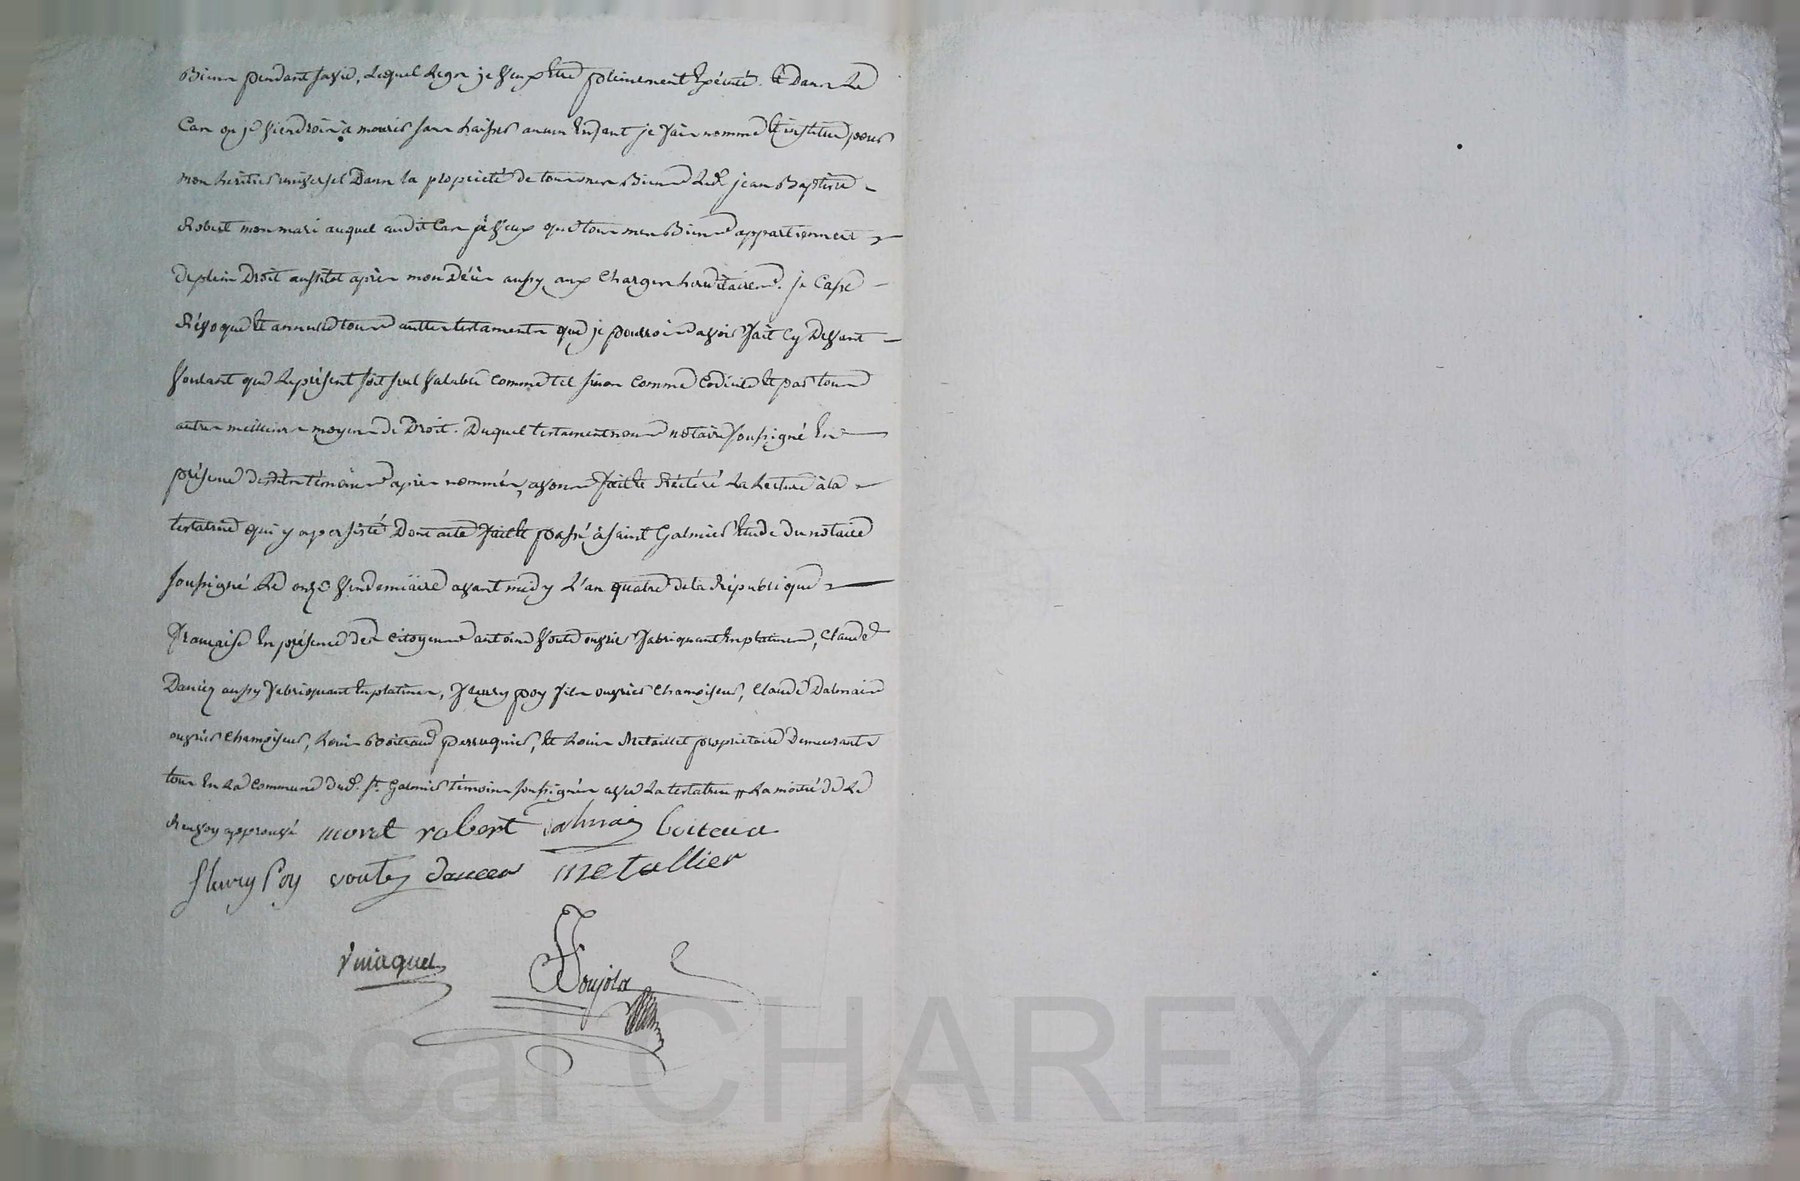 Biens pendant sa vie, lequel legs je veux être pleinement Exécuté. Et Dans le
Cas où je viendrois à mourir sans laisser aucun Enfant je fais nomme Et institue pour
mon héritier universel Dans la propriété de tous mes Biens led. jean Baptiste
Robert mon mari auquel audit Cas je veux que tous mes Biens appartiennent
de plein Droit aussitot après mon Décès aussy aux Charges héréditaires. je Casse
Révoque Et annulle tous autres testaments que je pourrois avoir fait Cy Devant
voulant que le présent soit seul valable comme tel sinon comme Codicile Et par tous
autres meilleurs moyens de Droit. Duquel testament nous notaire soussigné En
présence desdits témoins après nommés, avons fait Et Réitéré la lecture à la
testatrice qui y a persisté Dont acte fait Et passé à saint Galmier Etude du notaire
soussigné le onze vendemiaire avant midy l'an quatre de la République
française En présence des citoyens antoine voute ouvrier fabriquant En platines, Claude
aussy fabriquant En platines, fleury poy fils ouvrier chamoiseur, Claude Dalmais
ouvrier chamoiseur, Louis Boiteux perruquier, Et Louis Metaillet propriétaire Demeurants
tous En la Commune dud. St. Galmier témoins soussignés avec la testatrice la moitié de le
Renvoy approuvé moret robert dalmais boiteux
fleury Poy voute metallier
Pascal CHAREYRON